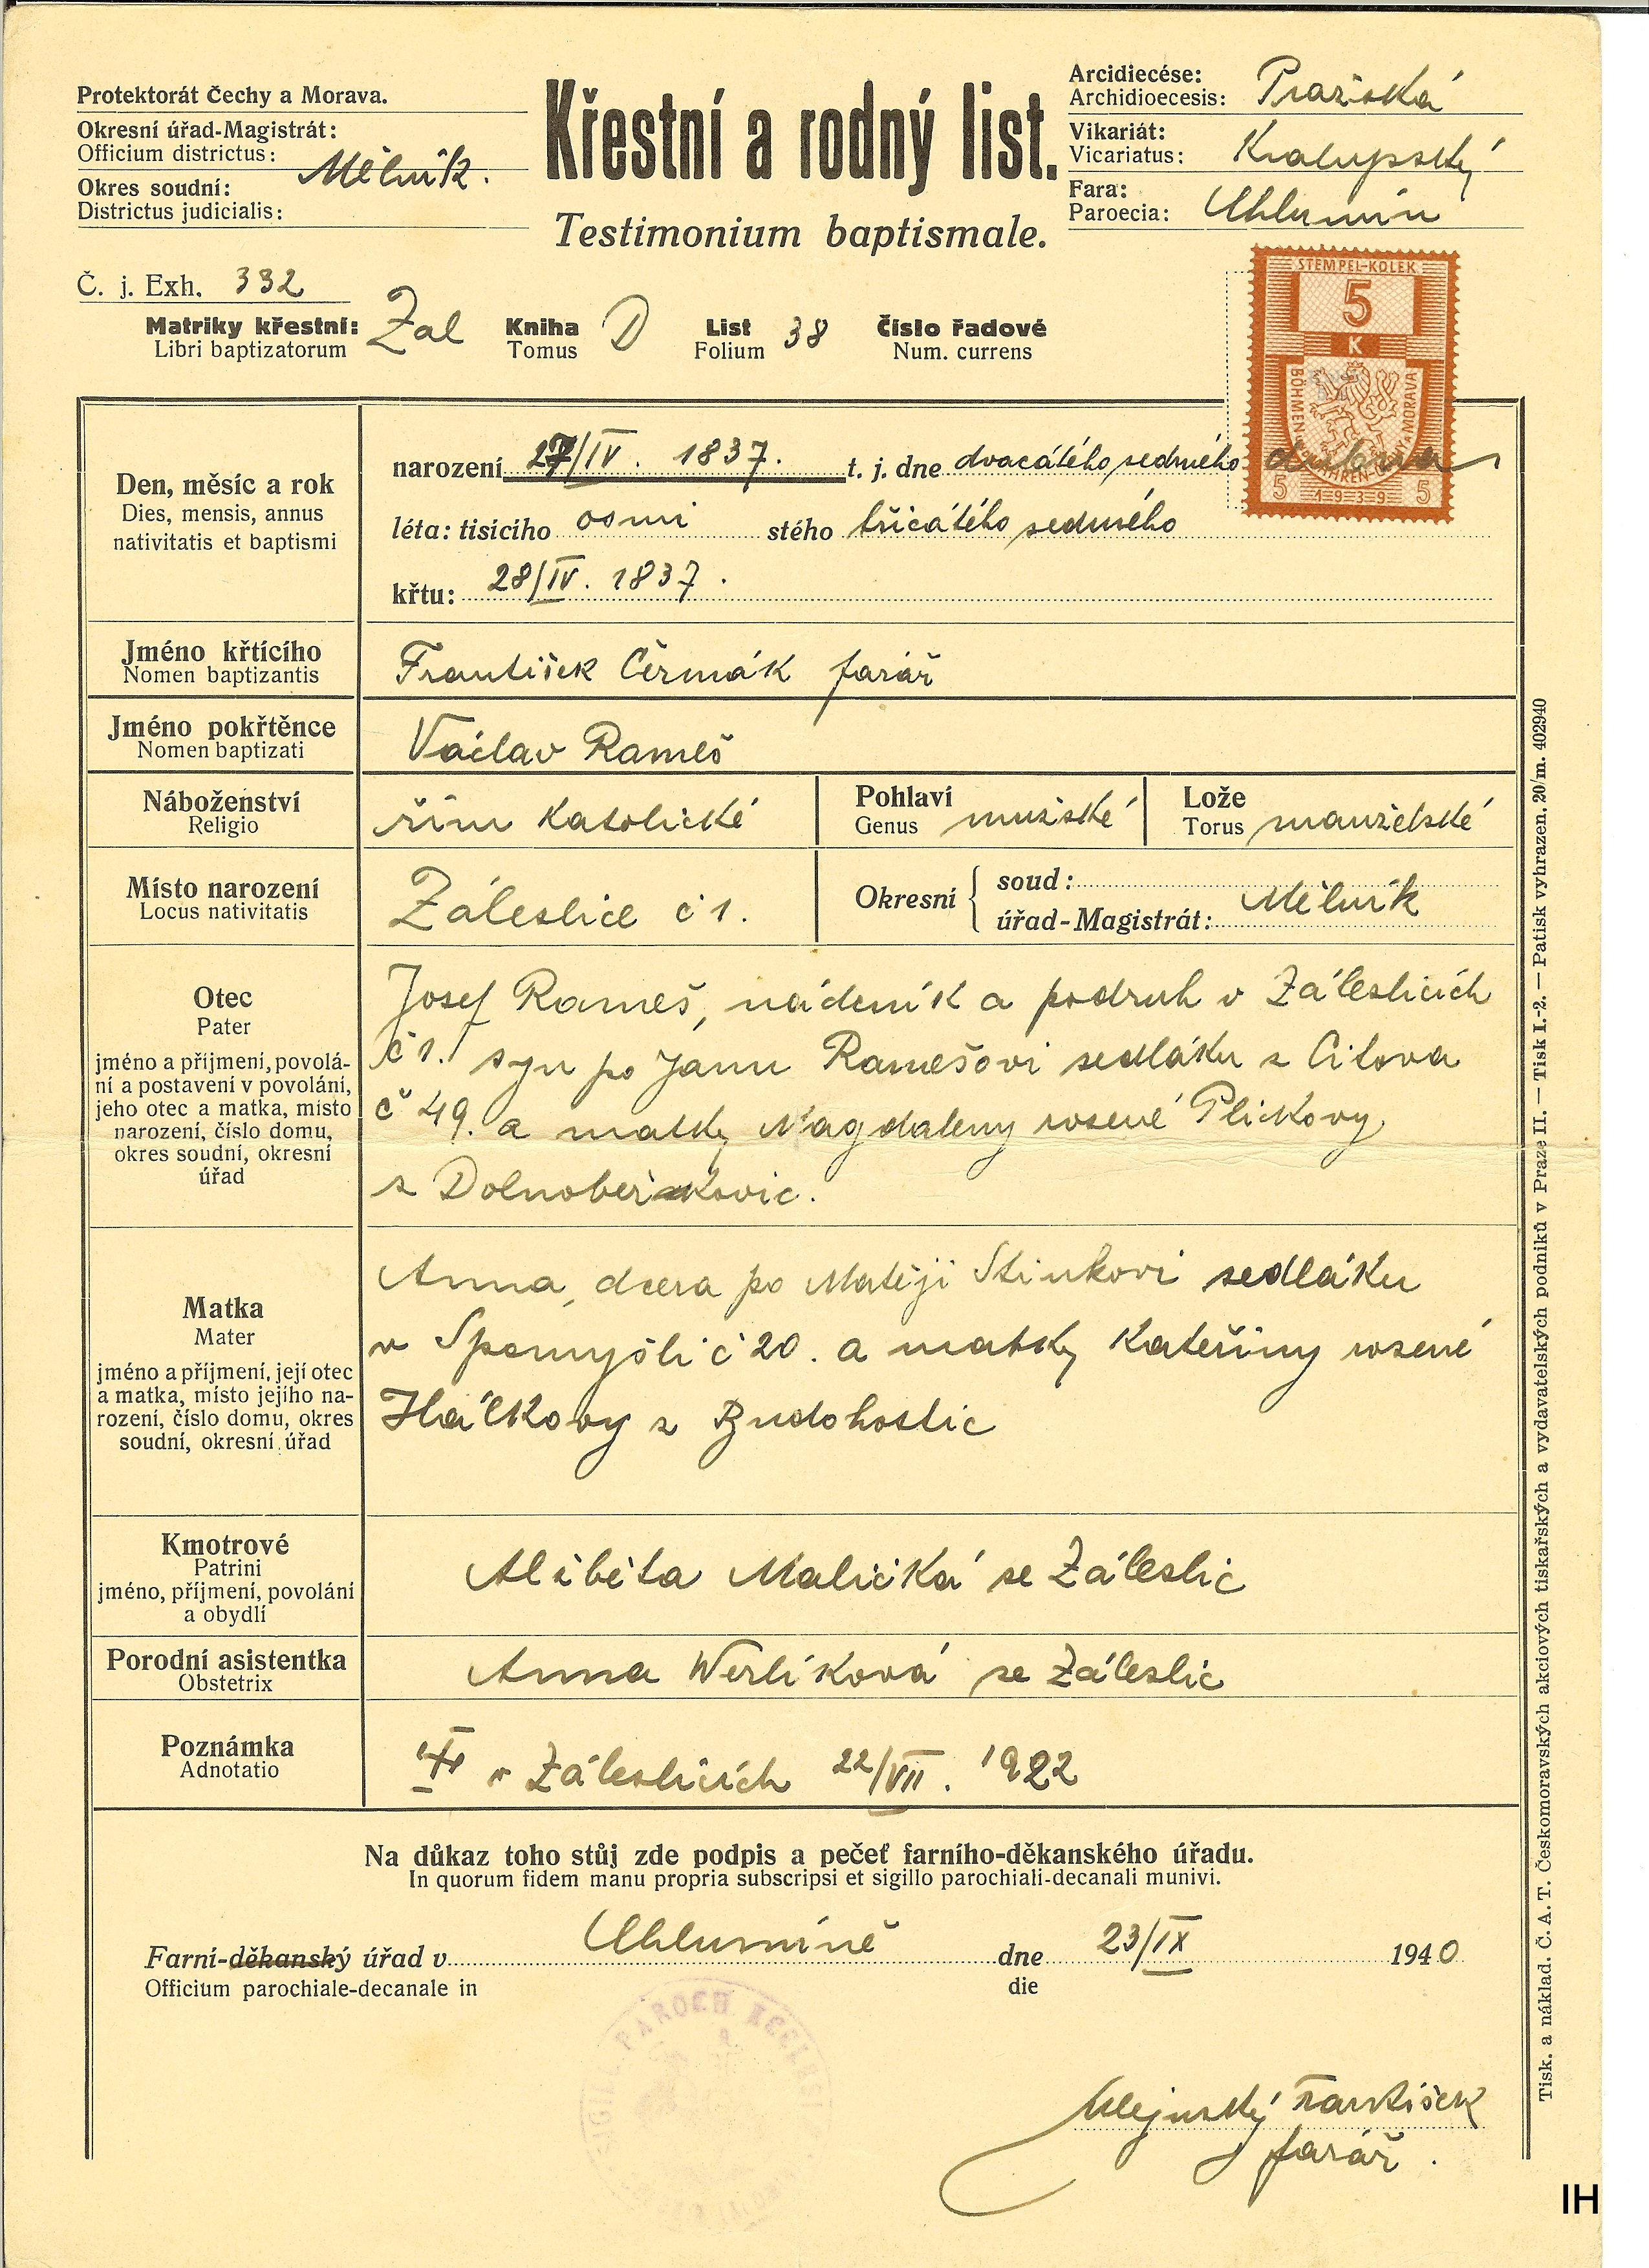 Protektorát Čechy a Morava.
Okresní úřad-Magistrát:
Officium districtus:
Mělník.
Okres soudní:
Districtus judicialis:
Křestní a rodný list.
Testimonium baptismale.
Arcidiecése:
Archidioecesis: Pražská
Vikariát:
Vicariatus: Kralupský
Fara:
Paroecia: Chlumín
Č. j. Exh. 332
Matriky křestní: Zal Kniha D List 38 Číslo řadové
Libri baptizatorum Tomus Folium Num. currens
STEMPEL-KOLEK
5
K
BÖHMEN U. MÄHREN ČECHY A MORAVA
5 1939 5
Den, měsíc a rok
Dies, mensis, annus
nativitatis et baptismi
narození 27/IV. 1837. t. j. dne dvacátého sedmého dubna
léta: tisícího osmi stého třicátého sedmého
křtu: 28/IV. 1837.
Jméno křtícího
Nomen baptizantis
František Čermák farář
Jméno pokřtěnce
Nomen baptizati
Václav Rameš
Náboženství
Religio
řím katolické
Pohlaví
Genus mužské
Lože
Torus manželské
Místo narození
Locus nativitatis
Záleslice č 1.
Okresní { soud:
úřad-Magistrát: Mělník
Otec
Pater
jméno a příjmení, povolá-
ní a postavení v povolání,
jeho otec a matka, místo
narození, číslo domu,
okres soudní, okresní
úřad
Josef Rameš, nádeník a podruh v Záleslicích
č 1. syn po Janu Ramešovi sedláku z Citova
č 49. a matky Magdaleny rozené Plickovy
z Dolnoberkovic.
Matka
Mater
jméno a příjmení, její otec
a matka, místo jejího na-
rození, číslo domu, okres
soudní, okresní úřad
Anna, dcera po Matěji Stinkovi sedláku
v Spomyšli č 20. a matky Kateřiny rozené
Hálkovy z Budohostic
Kmotrové
Patrini
jméno, příjmení, povolání
a obydlí
Alžběta Maličká ze Záleslic
Porodní asistentka
Obstetrix
Anna Werlíková ze Záleslic
Poznámka
Adnotatio
v Záleslicích 22/VII. 1922
Na důkaz toho stůj zde podpis a pečeť farního-děkanského úřadu.
In quorum fidem manu propria subscripsi et sigillo parochiali-decanali munivi.
Farní-děkanský úřad v Chlumíně dne 23/IX 1940
Officium parochiale-decanale in die
SIGILL. PAROCH ECCLESI
František
farář.
Tisk. a náklad. Č. A. T. Českomoravských akciových tiskařských a vydavatelských podniků v Praze II. — Tisk I.-2. — Patisk vyhrazen. 20/m. 402940
IH